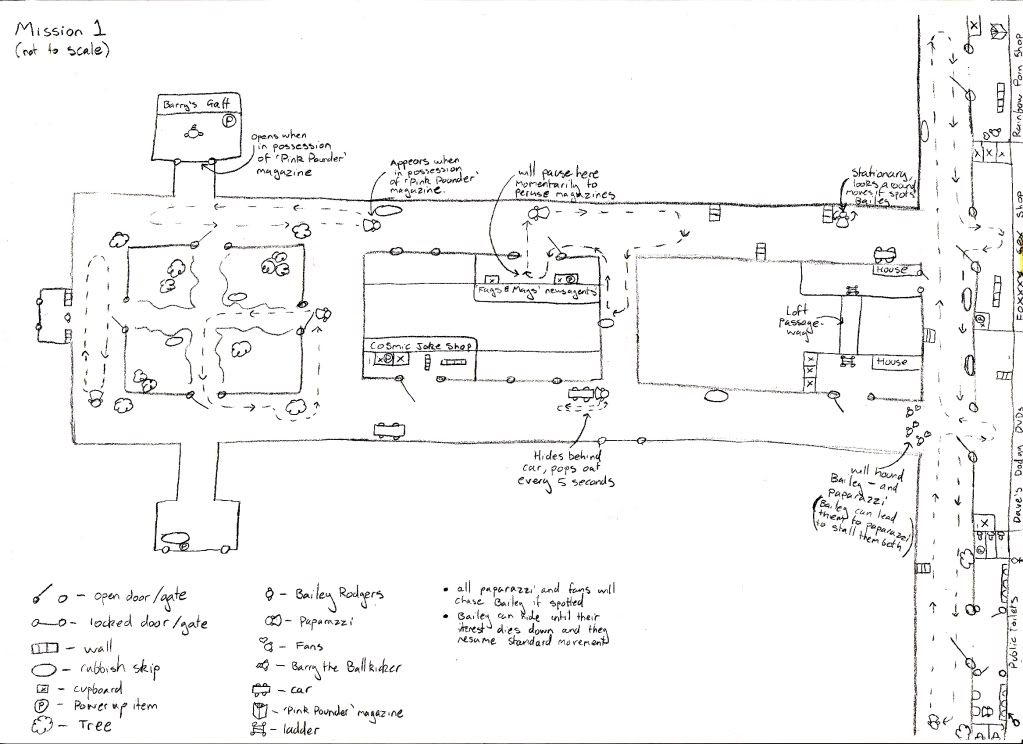 Mission 1
(not to scale)
Barry's Gaff
P
Opens when
in possession
of 'Pink Pounder'
magazine
Appears when
in possession
of 'Pink Pounder'
magazine.
will pause here
momentarily to
peruse magazines
Stationary,
looks around
moves if spots
Bailey
Rainbow Porn Shop
Foxxxy Sex Shop
Dave's Dodgy DVDs
Public Toilets
'Fags & Mags' newsagents
Cosmic Joke Shop
House
Loft
Passage-
way
House
Hides behind
car, pops out
every 5 seconds
will hound
Bailey - and
paparazzi
(Bailey can lead
them to paparazzi
to stall them both)
- open door/gate
- locked door/gate
- wall
- rubbish skip
- cupboard
- Power up item
- Tree
- Bailey Rodgers
- Paparazzi
- Fans
- Barry the Ballkicker
- car
- 'Pink Pounder' magazine
- ladder
• all paparazzi and fans will
chase Bailey if spotted
• Bailey can hide until their
interest dies down and they
resume standard movement